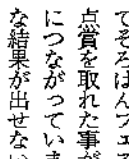 てそろばんフェ
点賞を取れた事が
につながっていま
な結果が出せな